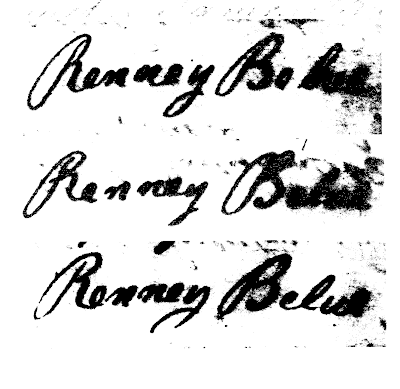 Renney Belue
Renney Belue
Renney Belue